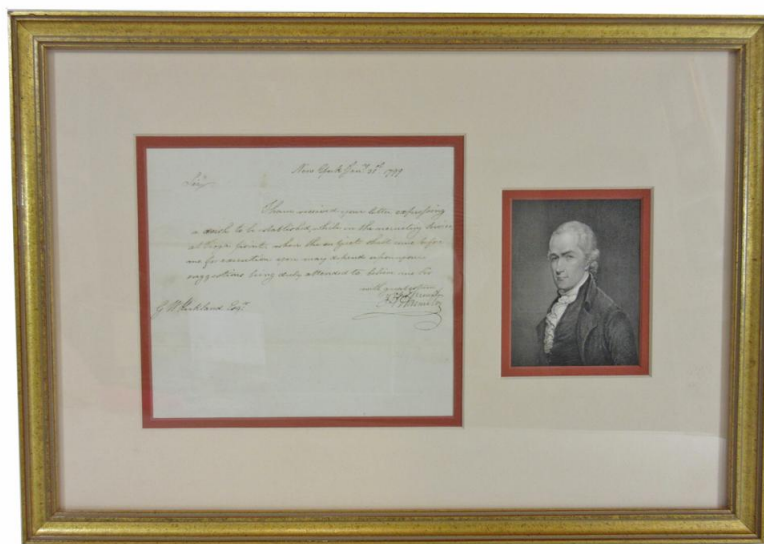 New York Jany. 21st. 1799
Sir
I have received your letter expressing
a wish to be established, while in the recruiting
at three points, when the subject shall come before
me for execution you may depend upon your
suggestions being duly attended to believe me Sir
with great esteem
G W Kirkland Esqr.